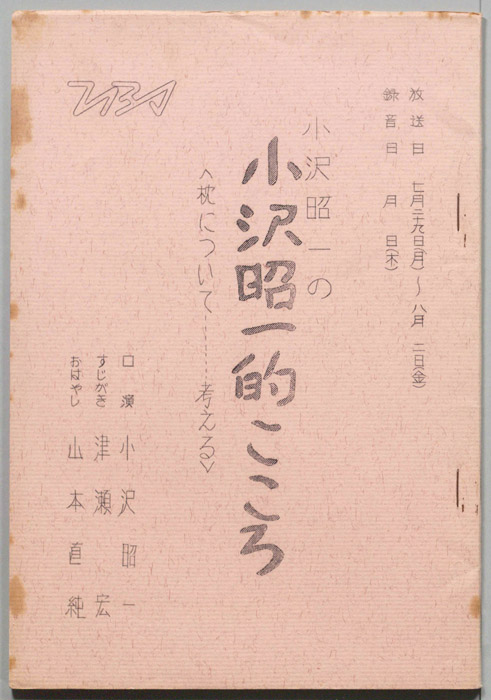 放送日 七月二十九日(月)～八月 二日(金)
録音日 月 日(木)
小沢昭一の
小沢昭一的こころ
〈枕について………考える〉
口演 小沢昭一
すじがき 津瀬宏
おはやし 山本直純
TBS